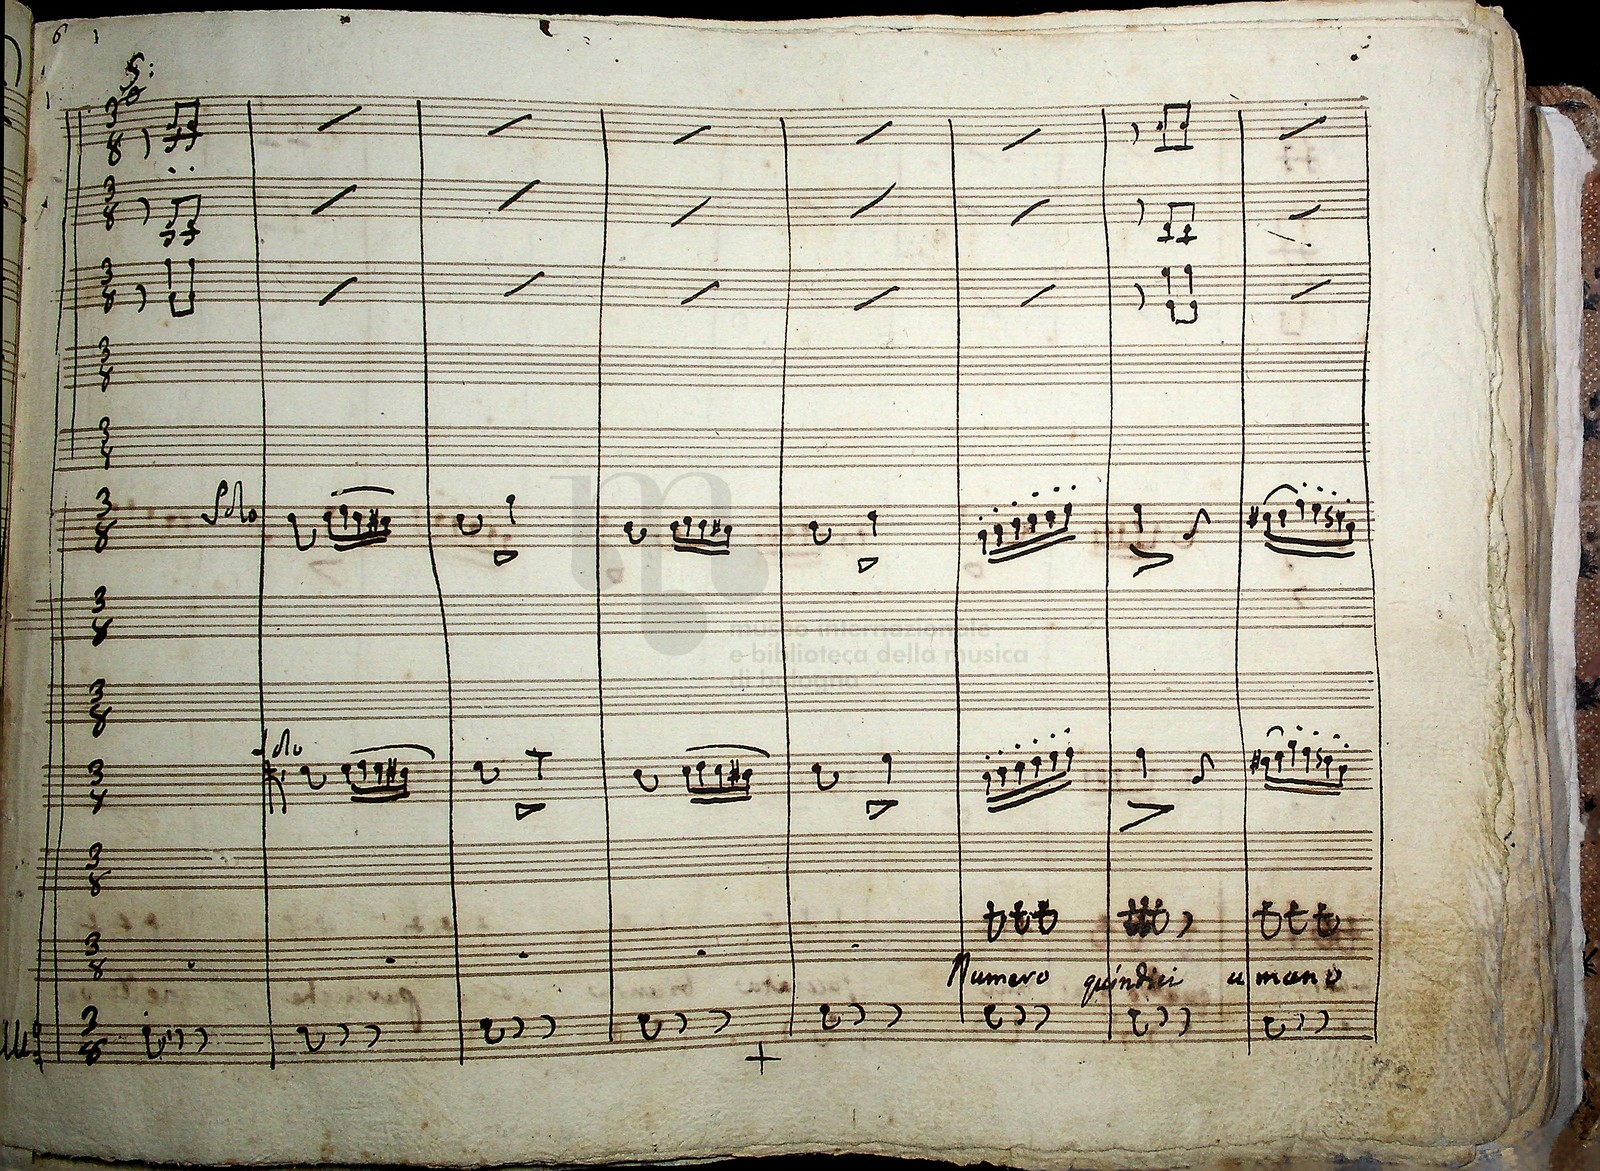 6
3 8
3 8
3 8
3 8
3 8
Solo
3 8
3 8
3 8
Solo
3 8
3 8
3 8
Numero quindici a mano
3 8
museo internazionale
e biblioteca della musica
di bologna
72